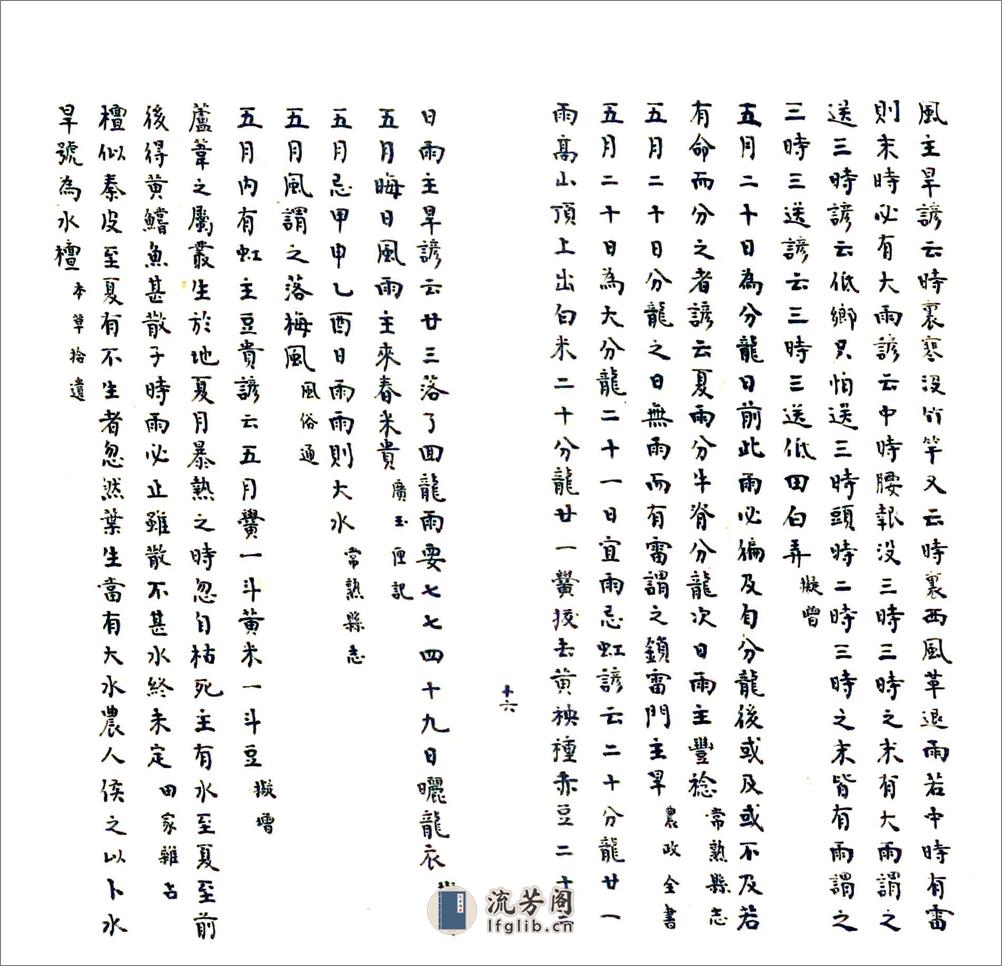 風主旱諺云時裏寒没竹竿又云時裏西風革退雨若中時有雷
則末時必有大雨諺云中時腰報没三時三時之末有大雨謂之
送三時諺云低鄉只怕送三時頭時二時三時之末皆有雨謂之
三時三送諺云三時三送低田白弄擬增
五月二十日為分龍日前此雨必徧及自分龍後或及或不及若
有命而分之者諺云夏雨分牛脊分龍次日雨主豐稔常熟縣志
五月二十日分龍之日無雨而有雷謂之鎖雷門主旱農政全書
五月二十日為大分龍二十一日宜雨忌虹諺云二十分龍廿一
雨高山頂上出白米二十分龍廿一鱟拔去黄秧種赤豆二十三
十六
日雨主旱諺云廿三落了回龍雨要七七四十九日曬龍衣
五月晦日風雨主來春米貴廣玉匣記
五月忌甲申乙酉日雨雨則大水常熟縣志
五月風謂之落梅風風俗通
五月内有虹主豆貴諺云五月鱟一斗黄米一斗豆擬增
蘆葦之屬叢生於地夏月暴熱之時忽自枯死主有水至夏至前
後得黄鱔魚甚散子時雨必止雖散不甚水終未定田家雜占
檀似秦皮至夏有不生者忽然葉生當有大水農人候之以卜水
旱號為水檀本草拾遺
流芳阁
lfglib.cn